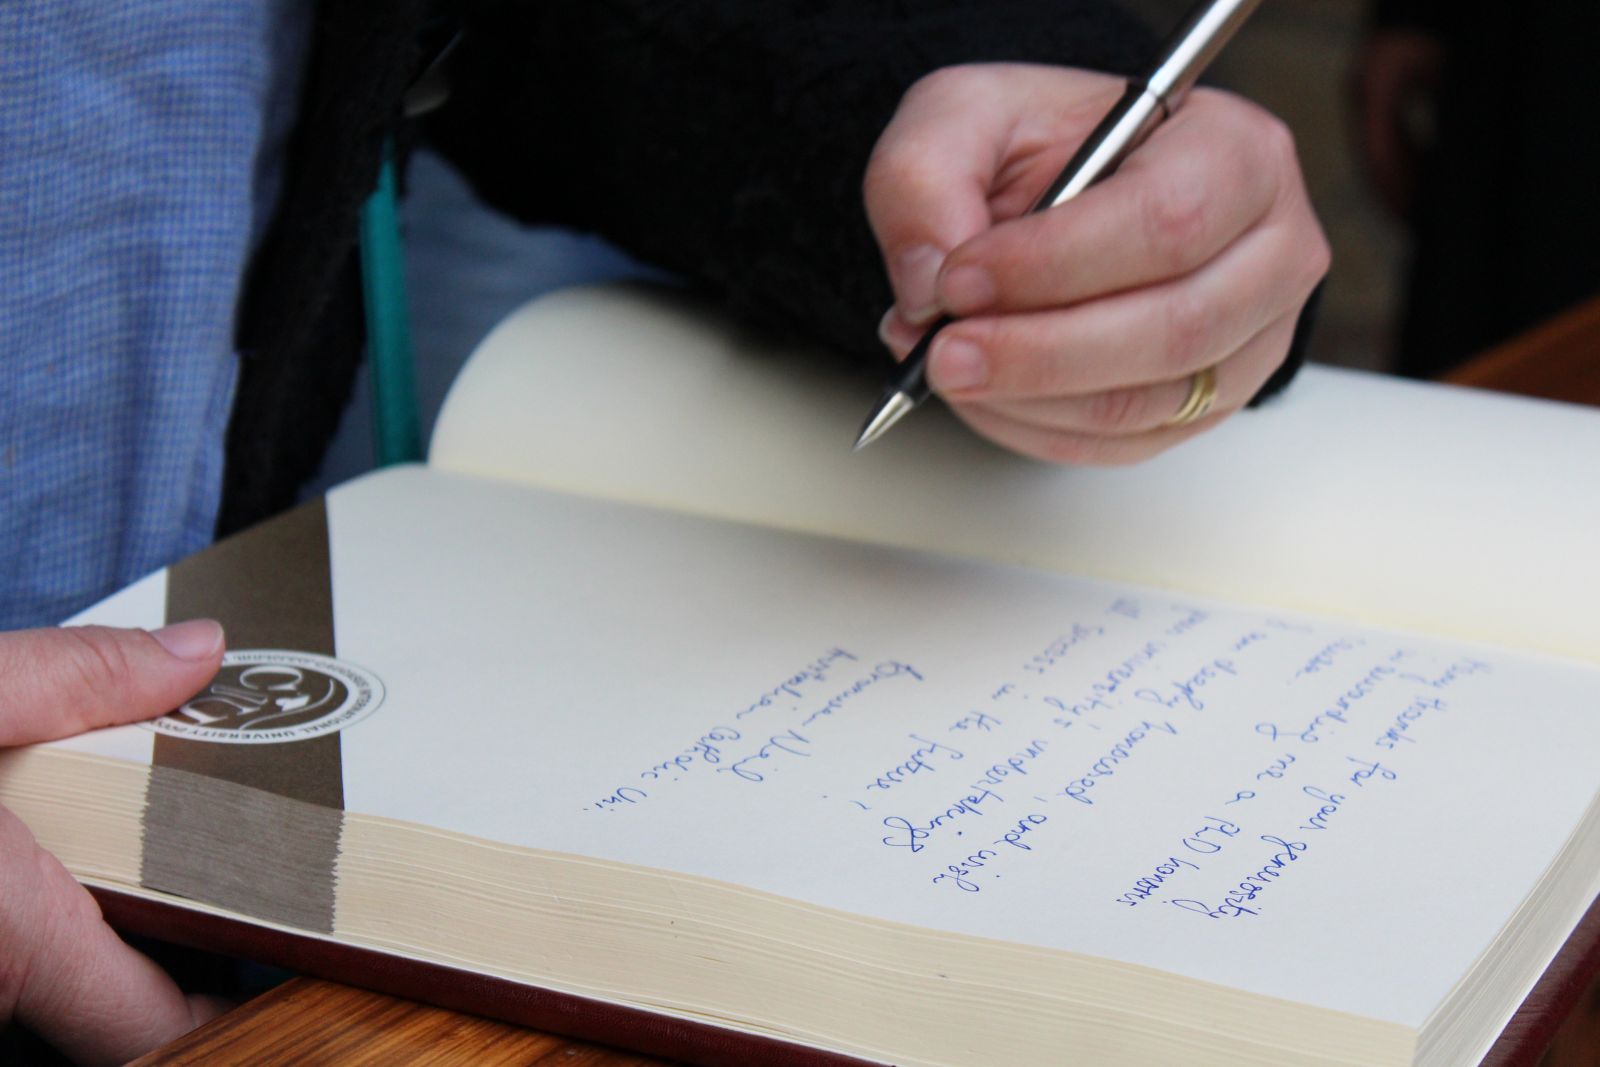 Many thanks for your generosity
in awarding me a PhD honoris
causa.
I am deeply honoured, and wish
your university's undertakings
all success in the future.
Neil
Australian Catholic Uni.
CIU
INTERNATIONAL UNIVERSITY